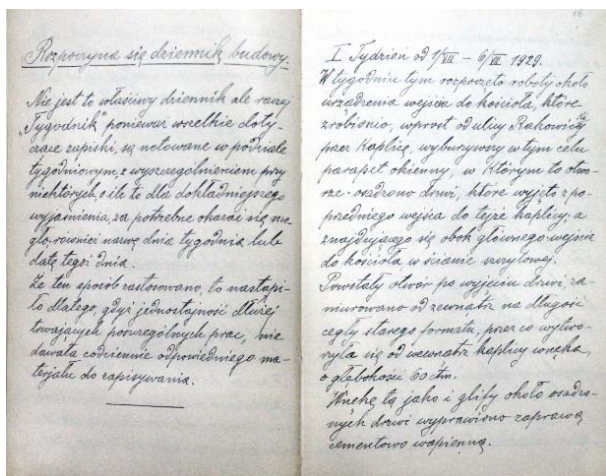 Rozpoczyna się dziennik budowy.
Nie jest to właściwy dziennik ale raczej
„Tygodnik" ponieważ wszelkie doty-
czące zapiski, są notowane w podziale
tygodniowym, z wyszczególnieniem przy
niektórych, o ile to dla dokładniejszego
wyjaśnienia, za potrzebne okazać się mo-
gło, również nazwę dnia tygodnia lub
datę tegoż dnia.
Że ten sposób zastosowano, to nastąpi-
ło dlatego, gdyż jednostajność dłużej
trwających poszczególnych prac, nie
dawała codziennie odpowiedniego ma-
terjału do zapisywania.
I Tydzień od 1/VII – 6/VII 1929.
W tygodniu tym rozpoczęto roboty około
urządzenia wejścia do kościoła, które
zrobiono, wprost od ulicy Rakowickiej
przez Kaplicę, wyburzywszy w tym celu
parapet okienny, w którym to otwo-
rze osadzono drzwi, które wyjęto z po-
przedniego wejścia do tejże kaplicy, a
znajdującego się obok głównego wejścia
do kościoła w ścianie szczytowej.
Powstały otwór po wyjęciu drzwi, za-
murowano od zewnątrz na długość
cegły starego formatu, przez co wytwo-
rzyła się od wewnątrz kaplicy wnęka,
o głębokości 60 ctm.
Wnękę tą jako i glify około osadzo-
nych drzwi wyprawiono zaprawą
cementowo wapienną.